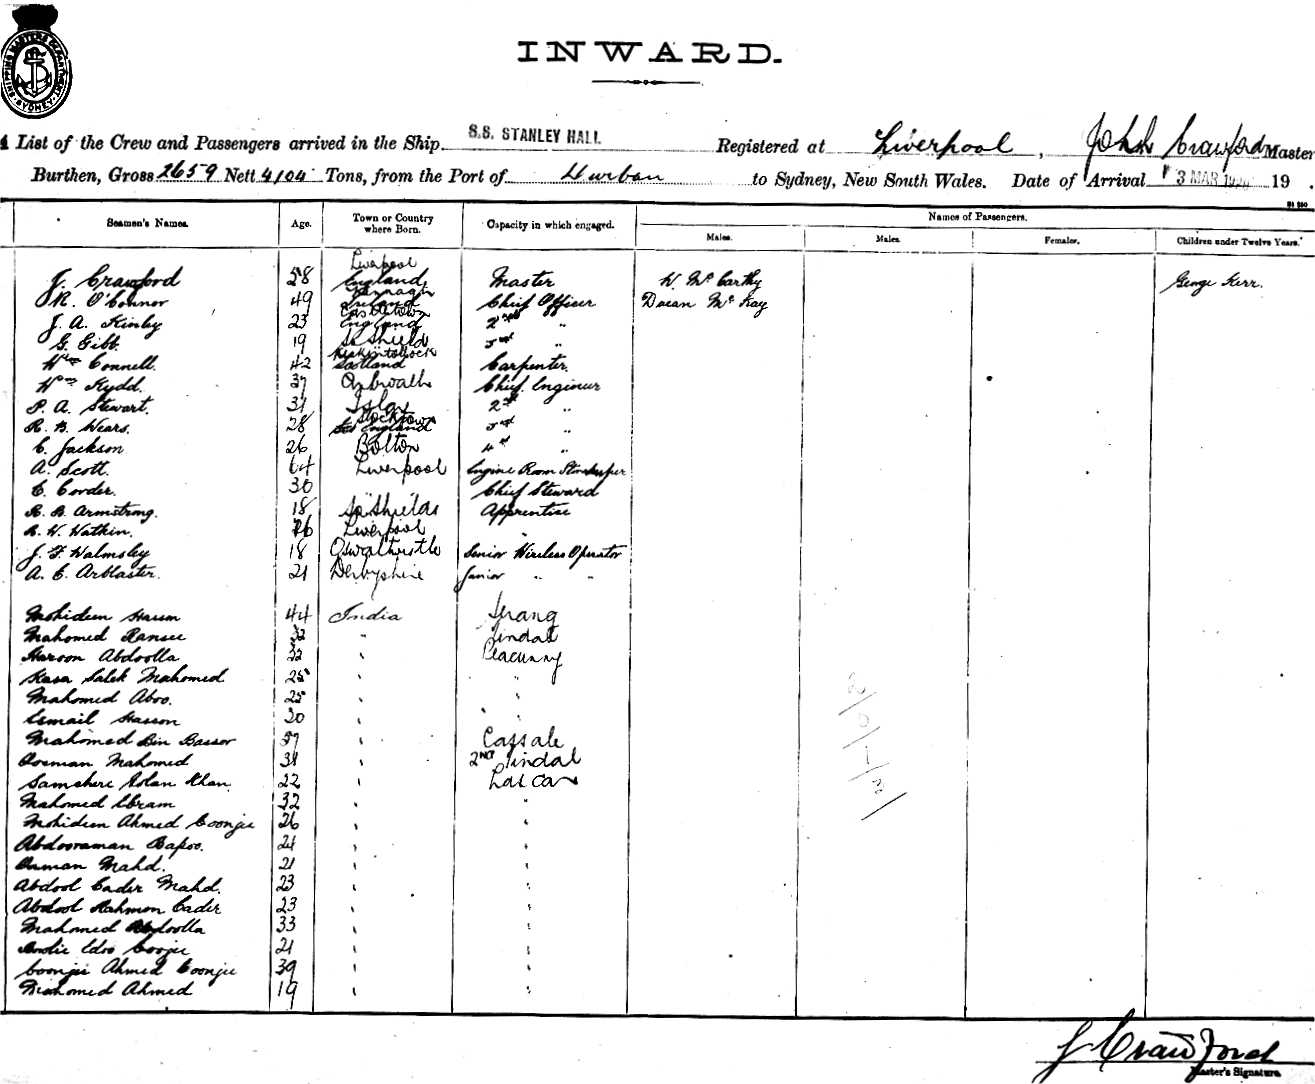 SHIPPING MASTERS DEPARTMENT SYDNEY
INWARD.
A List of the Crew and Passengers arrived in the Ship S.S. STANLEY HALL Registered at Liverpool, John Crawford Master
Burthen, Gross 2659 Nett 4104 Tons, from the Port of Durban to Sydney, New South Wales. Date of Arrival 3 MAR 19 .
Seamen's Names. Age. Town or Country where Born. Capacity in which engaged. Names of Passengers.
Males. Males. Females. Children under Twelve Years.
J. Crawford 58 Liverpool England Master W. McCarthy George Kerr.
R. O'Connor 49 Ireland Chief Officer Mc Kay
J. A. Kinley 23 Castletown England 2nd "
G. Gibb. 19 So Shields 3rd "
Wm Connell. 42 Scotland Carpenter.
Wm Kydd. 37 Arbroath Chief Engineer
P. A. Stewart. 31 Islay 2nd "
R. B. Wears. 28 Stockton England 3rd "
C. Jackson 26 Bolton 4th "
A. Scott. 64 Liverpool Engine Room Storekeeper
C. Corder. 30 " " Chief Steward
R. B. Armstrong. 18 So Shields Apprentice
R. W. Watkin. 16 Liverpool "
J. F. Walmsley 18 Oswaltwistle Senior Wireless Operator
A. C. Arblaster. 21 Derbyshire Junior " "
Mohideen Hassen 44 India Serang
Mahomed Ransee 32 " Tindal
Haroon Abdoolla 32 " Seacunny
Salek Mahomed 25 " "
Mahomed Aboo. 25 " "
Esmail Hassen 30 " "
Mahomed Bin Bassor 57 " Cassab
Oosman Mahomed 31 " 2nd Tindal
Khan. 22 " Lascar
Mahomed Ebram 32 " "
Mohideen Ahmed Coonjee 26 " "
Abdooraman Bapoo. 21 " "
Osman Mahd. 21 " "
Abdool Cader Mahd. 23 " "
Abdool Rahmon Cader 23 " "
Mahomed Abdoolla 33 " "
21 " "
Coonjee Ahmed Coonjee 39 " "
Mahomed Ahmed 19 " "
J Crawford
Master's Signature.